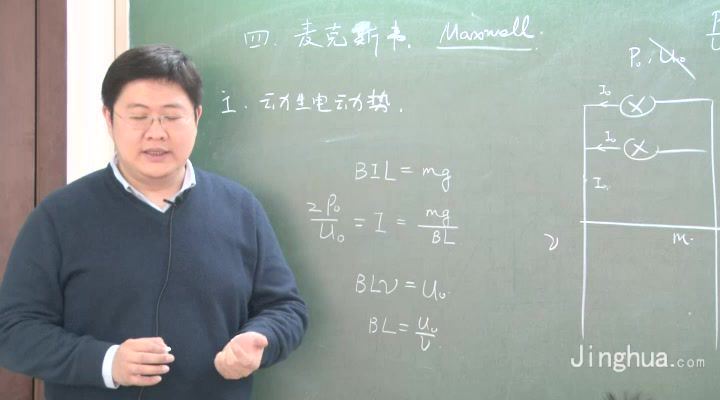 四. 麦克斯韦. Maxwell.
1. 动生电动势.
BIL = mg
2P₀/U₀ = I = mg/BL
BLv = U₀.
BL = U₀/v
P₀, U₀
I₀
I₀
I
v
m.
Jinghua.com